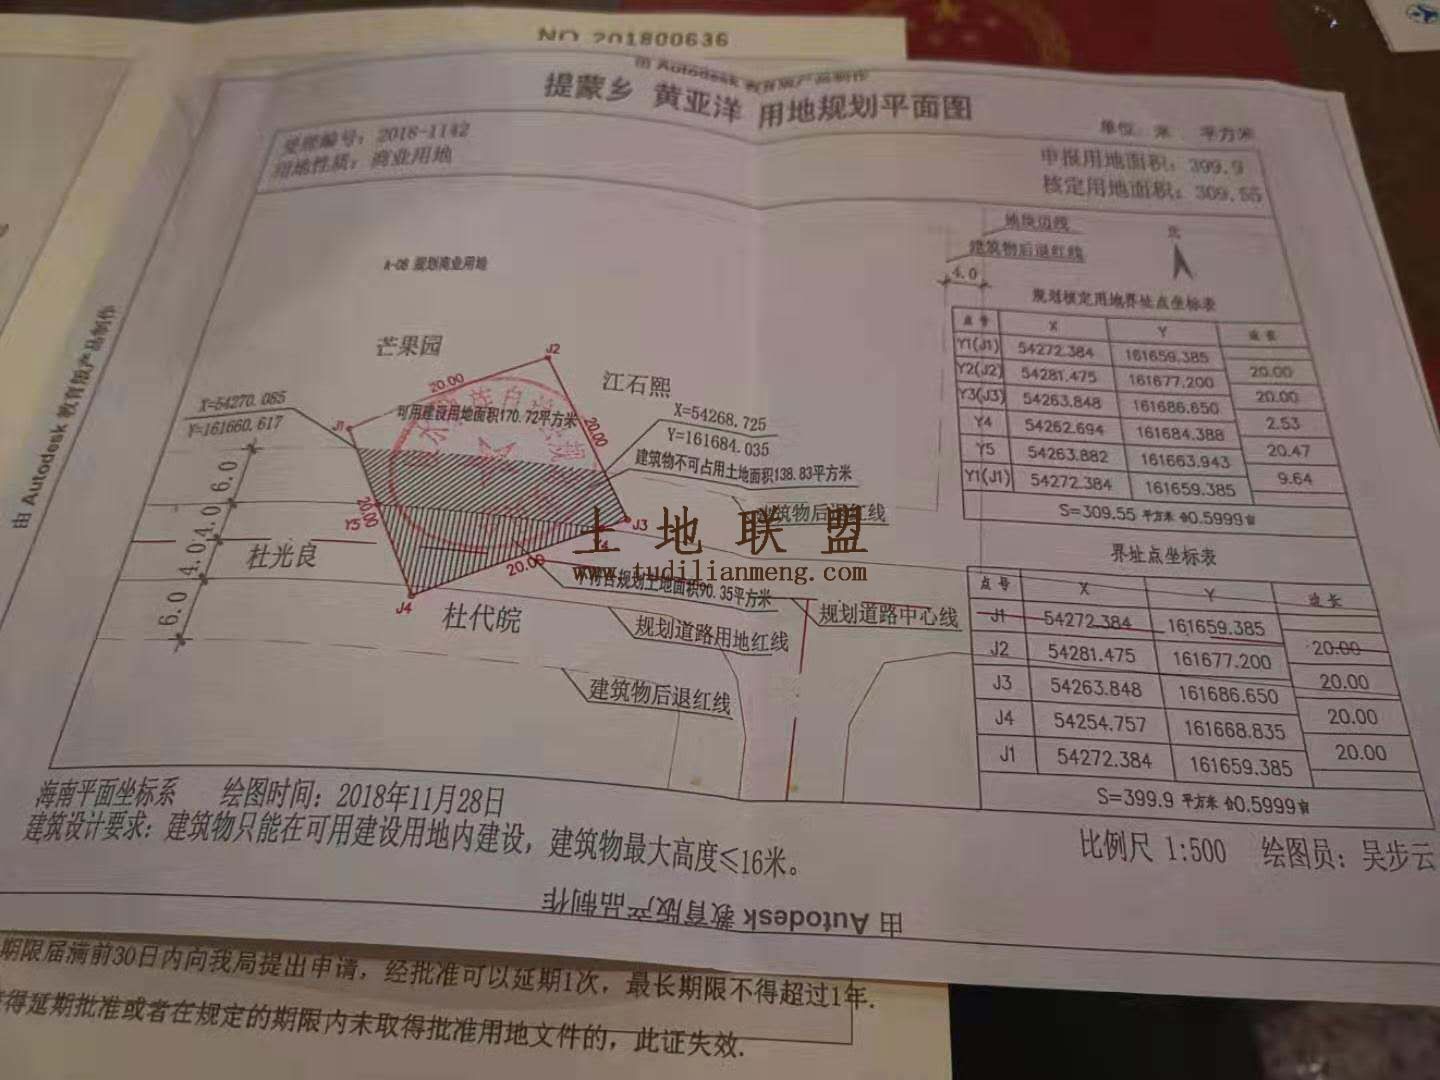 NO.201800636
由 Autodesk 教育版产品制作
提蒙乡 黄亚洋 用地规划平面图
受理编号：2018-1142
用地性质：商业用地
单位：米 平方米
申报用地面积：399.9
核定用地面积：309.55
A-08 规划商业用地
地块边线
建筑物后退红线
4.0
北
芒果园
江石熙
杜光良
杜代皖
J1
J2
J3
J4
Y4
Y5
20.00
20.00
20.00
20.00
X=54270.085
Y=161660.617
X=54268.725
Y=161684.035
可用建设用地面积170.72平方米
建筑物不可占用土地面积138.83平方米
建筑物后退红线
不符合规划土地面积90.35平方米
规划道路中心线
规划道路用地红线
建筑物后退红线
6.0
4.0
4.0
6.0
土地联盟
www.tudilianmeng.com
规划核定用地界址点坐标表
点号 X Y 边长
Y1(J1) 54272.384 161659.385
20.00
Y2(J2) 54281.475 161677.200
20.00
Y3(J3) 54263.848 161686.650
2.53
Y4 54262.694 161684.388
20.47
Y5 54263.882 161663.943
9.64
Y1(J1) 54272.384 161659.385
S=309.55 平方米 合0.5999亩
界址点坐标表
点号 X Y 边长
J1 54272.384 161659.385
20.00
J2 54281.475 161677.200
20.00
J3 54263.848 161686.650
20.00
J4 54254.757 161668.835
20.00
J1 54272.384 161659.385
S=399.9 平方米 合0.5999亩
海南平面坐标系 绘图时间：2018年11月28日
比例尺 1:500 绘图员：吴步云
建筑设计要求：建筑物只能在可用建设用地内建设，建筑物最大高度≤16米。
由 Autodesk 教育版产品制作
由 Autodesk 教育版产品制作
期限届满前30日内向我局提出申请，经批准可以延期1次，最长期限不得超过1年.
得延期批准或者在规定的期限内未取得批准用地文件的，此证失效.